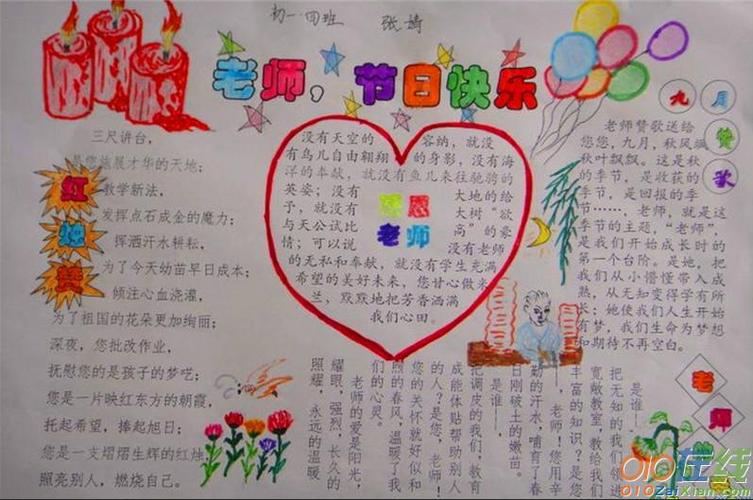 初一·四班 张婧
老师，节日快乐
红烛赞
三尺讲台，
是您施展才华的天地；
教学新法，
发挥点石成金的魔力；
挥洒汗水耕耘，
为了今天幼苗早日成本；
倾注心血浇灌，
为了祖国的花朵更加绚丽；
深夜，您批改作业，
抚慰您的是孩子的梦呓；
您是一片映红东方的朝霞，
托起希望，捧起旭日；
您是一支熠熠生辉的红烛，
照亮别人，燃烧自己。
感恩
老师
没有天空的 容纳，就没
有鸟儿自由翱翔 的身影，没有海
洋的奉献，就没有鱼儿来往驰骋的
英姿；没有 大地的给
予，就没有 大树“欲
与天公试比 高”的豪
情；可以说 没有老师
的无私和奉献，就没有学生充满
希望的美好未来，您甘心做米
兰，默默地把芳香洒满
我们心田。
九月赞歌
老师赞歌送给
您，九月，秋风
秋叶飘飘。这是秋的
季节，是收获的
季节，是回报的季
节……，老师，就是这
季节的主题，“老师”，
是我们开始成长时的
第一个台阶。是她，把
我们从小懵懂带入成
熟，从无知变得学有所
长；她使我们人生开始
有梦，我们生命为梦想
和期待不再空白。
老师
是谁——
把无知的我们领进
宽敞教室，教给我们
丰富的知识？是您
——，老师！您用辛
勤的汗水，哺育了春
日刚破土的嫩苗。
是谁——，
把调皮的我们，教育
成能体贴帮助别人
的人？是您，老师！
您的关怀就好似和
煦的春风，温暖了我
们的心灵。
老师的爱是阳光，
耀眼，强烈，长久的
照耀，永远的温暖
010在线
010ZaiXian.com